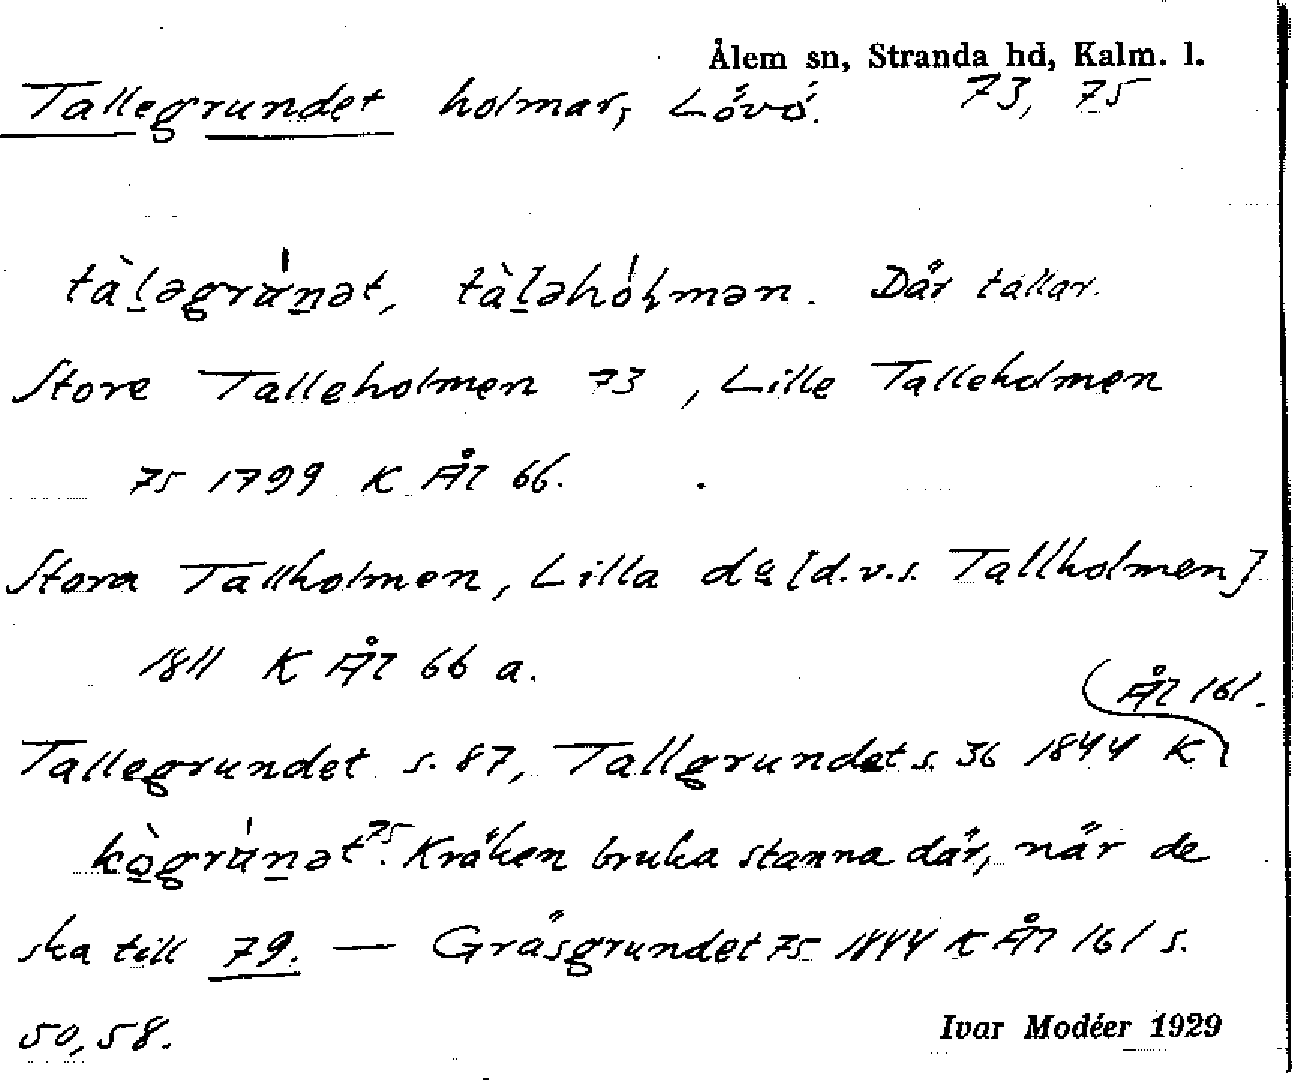 Ålem sn, Stranda hd, Kalm. l.
Tallegrundet holmar, Lövö. 73, 75
tàḷəgrụ́ṇət, tàḷəhóḷmən. Där tallar.
Store Talleholmen 73, Lille Talleholmen
75 1799 K Ål 66.
Stora Tallholmen, Lilla do [d.v.s. Tallholmen]
1811 K Ål 66 a.
Ål 161.
Tallegrundet s. 87, Tallgrundet s. 36 1844 K
75. Kräken bruka stanna där, når de
ska till 79. — Gräsgrundet 75 1844 K Ål 161 s.
50, 58.
Ivar Modéer 1929